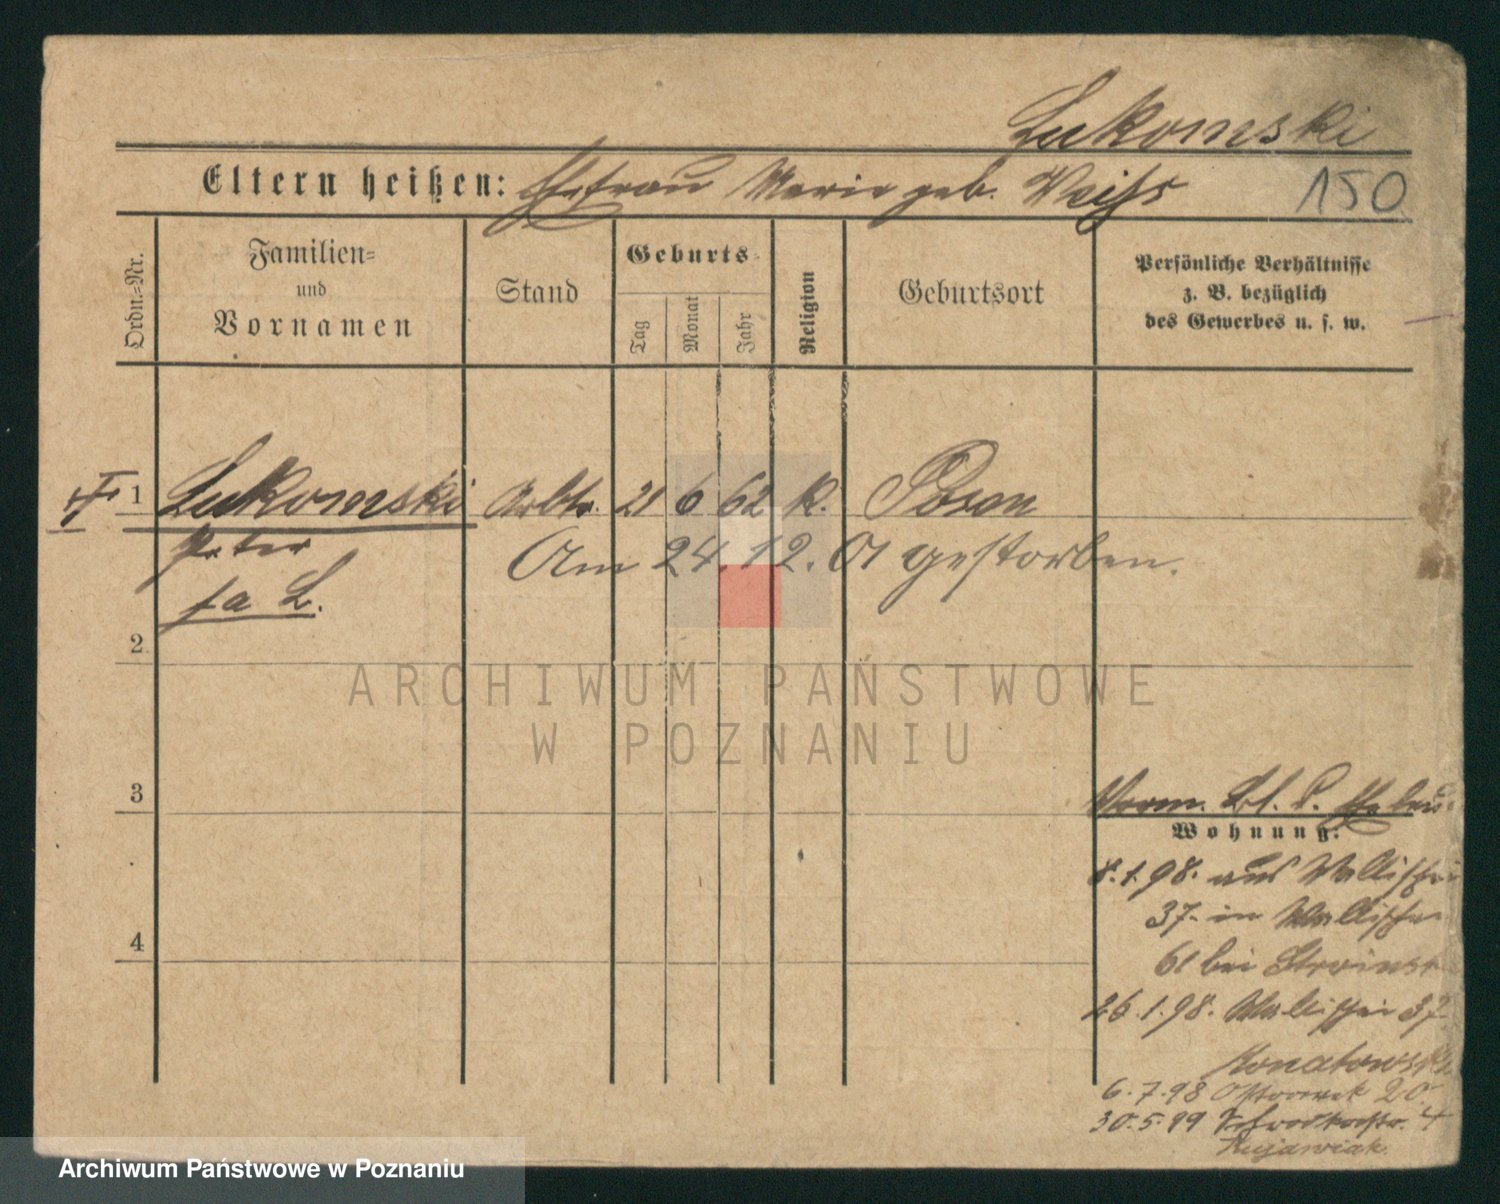 Lukomski
Eltern heißen: Ehefrau Marie geb. Weiss
150
Ordn.-Nr.
Familien-
und
Vornamen
Stand
Geburts-
Tag
Monat
Jahr
Religion
Geburtsort
Persönliche Verhältnisse
z. B. bezüglich
des Gewerbes u. s. w.
1 Lukomski Arbtr. 21 6 62 k. Posen
Peter
Am 24.12.01 gestorben.
L.
2
3
4
Wohnung:
8.1.98. aus Wallischei
37. in Wallischei
61 bei
26.1.98. Wallischei 37
Konatowski
6.7.98 Ostrowek 20.
30.5.99 4
Kujawiak.
ARCHIWUM PAŃSTWOWE
W POZNANIU
Archiwum Państwowe w Poznaniu